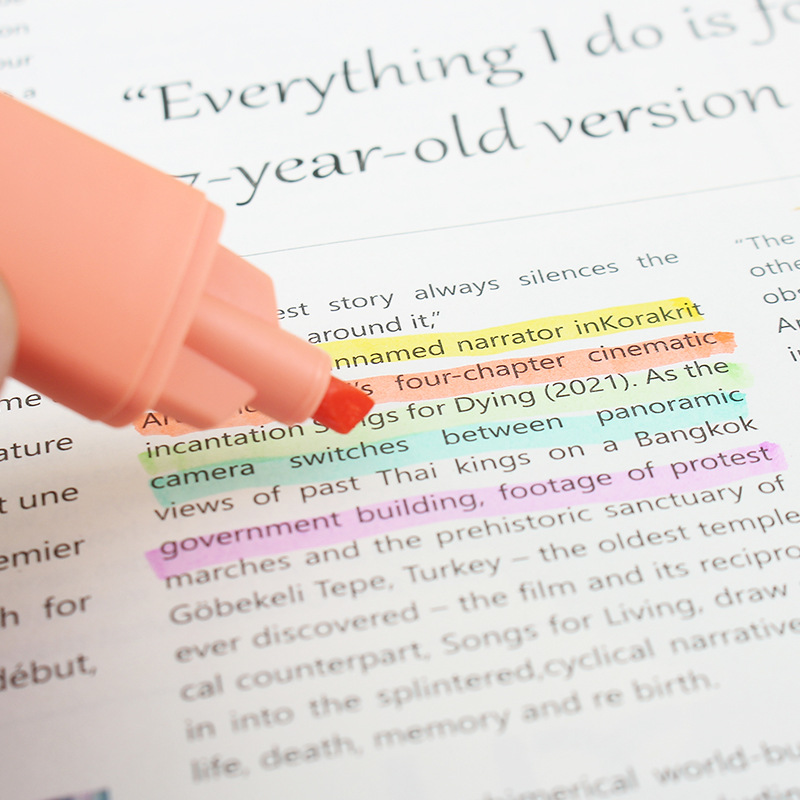 “Everything I do is fo
7-year-old version
est story always silences the
around it,”
nnamed narrator inKorakrit
's four-chapter cinematic
incantation Songs for Dying (2021). As the
camera switches between panoramic
views of past Thai kings on a Bangkok
government building, footage of protest
marches and the prehistoric sanctuary of
Göbekeli Tepe, Turkey – the oldest temple
ever discovered – the film and its recipro
cal counterpart, Songs for Living, draw
in into the splintered,cyclical narrative
life, death, memory and re birth.
himerical world-bu
me
ature
t une
emier
h for
début,
“The
othe
obs